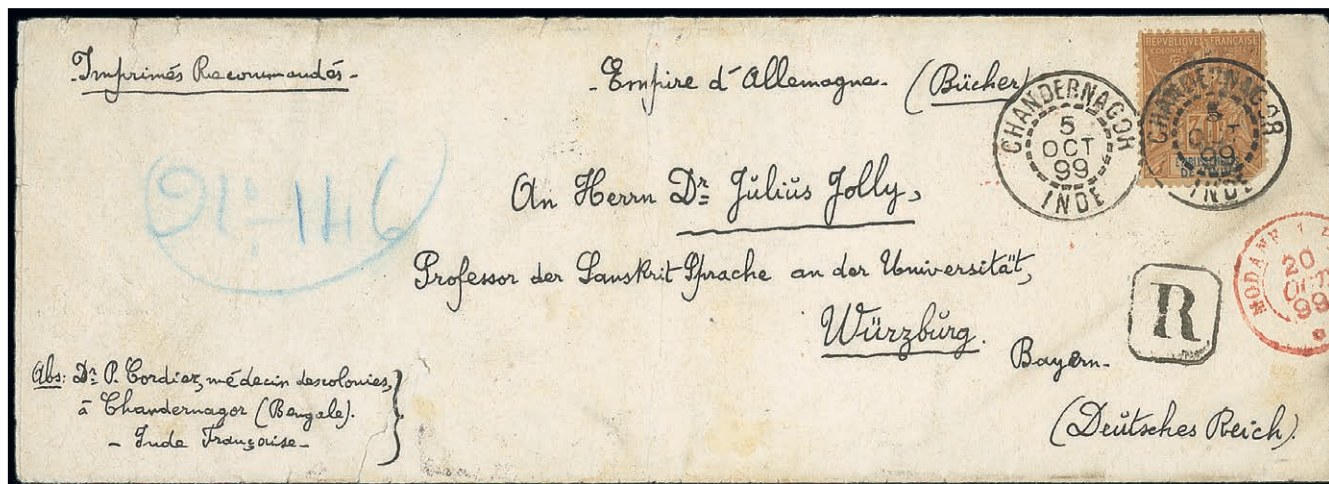 Imprimés Recommandés -
- Empire d'Allemagne - (Bücher)
REPVBLIQVE FRANÇAISE
COLONIES
CHANDERNAGOR
5
OCT
99
INDE
CHANDERNAGOR
5
OCT
99
INDE
An Herrn Dr Julius Jolly,
Professor der Sanskrit Sprache an der Universität,
Würzburg.
Bayern -
(Deutsches Reich).
R
MODANE
20
OCT
99
Abs: Dr P. Cordier, médecin des colonies,
à Chandernagor (Bengale).
- Inde Française -